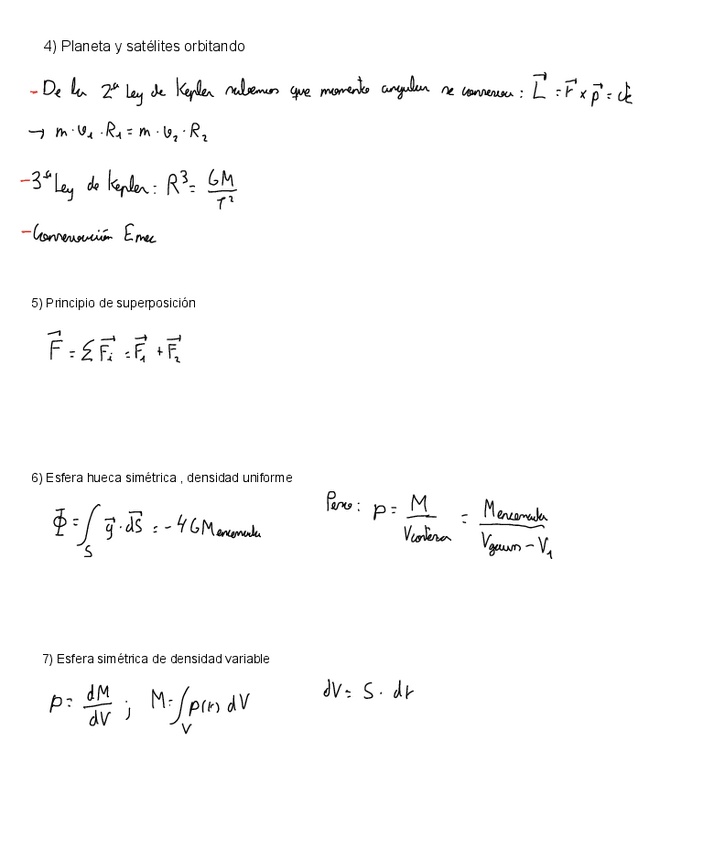 4) Planeta y satélites orbitando
- De la 2ª Ley de Kepler sabemos que momento angular se conserva: L⃗ = r⃗ × p⃗ = ctc
→ m·v₁·R₁ = m·v₂·R₂
- 3ª Ley de Kepler: R³ = GM/T²
- Conservación Emec
5) Principio de superposición
F⃗ = ΣF⃗ᵢ = F⃗₁ + F⃗₂
6) Esfera hueca simétrica , densidad uniforme
Φ = ∫_S g⃗·dS⃗ = -4GMencerrada
Pero: ρ = M/Vcorteza = Mencerrada/(Vgauss - V₁)
7) Esfera simétrica de densidad variable
ρ = dM/dV ; M = ∫_V ρ(r) dV
dV = S · dr